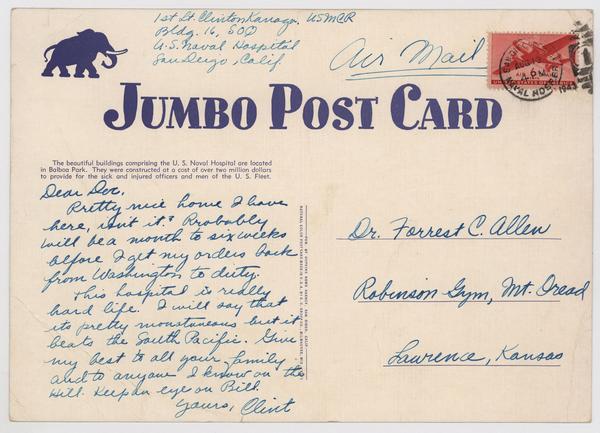 1st Lt. Clinton Kanaga, USMCR
Bldg. 16, SOQ
U.S. Naval Hospital
San Diego, Calif
Air Mail
JUMBO POST CARD
The beautiful buildings comprising the U. S. Naval Hospital are located
in Balboa Park. They were constructed at a cost of over two million dollars
to provide for the sick and injured officers and men of the U. S. Fleet.
Dear Doc,
Pretty nice home I have
here, isn't it? Probably
will be a month to six weeks
before I get my orders back
from Washington to duty.
This hospital is really
hard life. I will say that
its pretty monotuneous but it
beats the South Pacific. Give
my best to all your family
and to anyone I know on the
Hill. Keep an eye on Bill.
Yours, Clint
Dr. Forrest C. Allen
Robinson Gym, Mt. Oread
Lawrence, Kansas